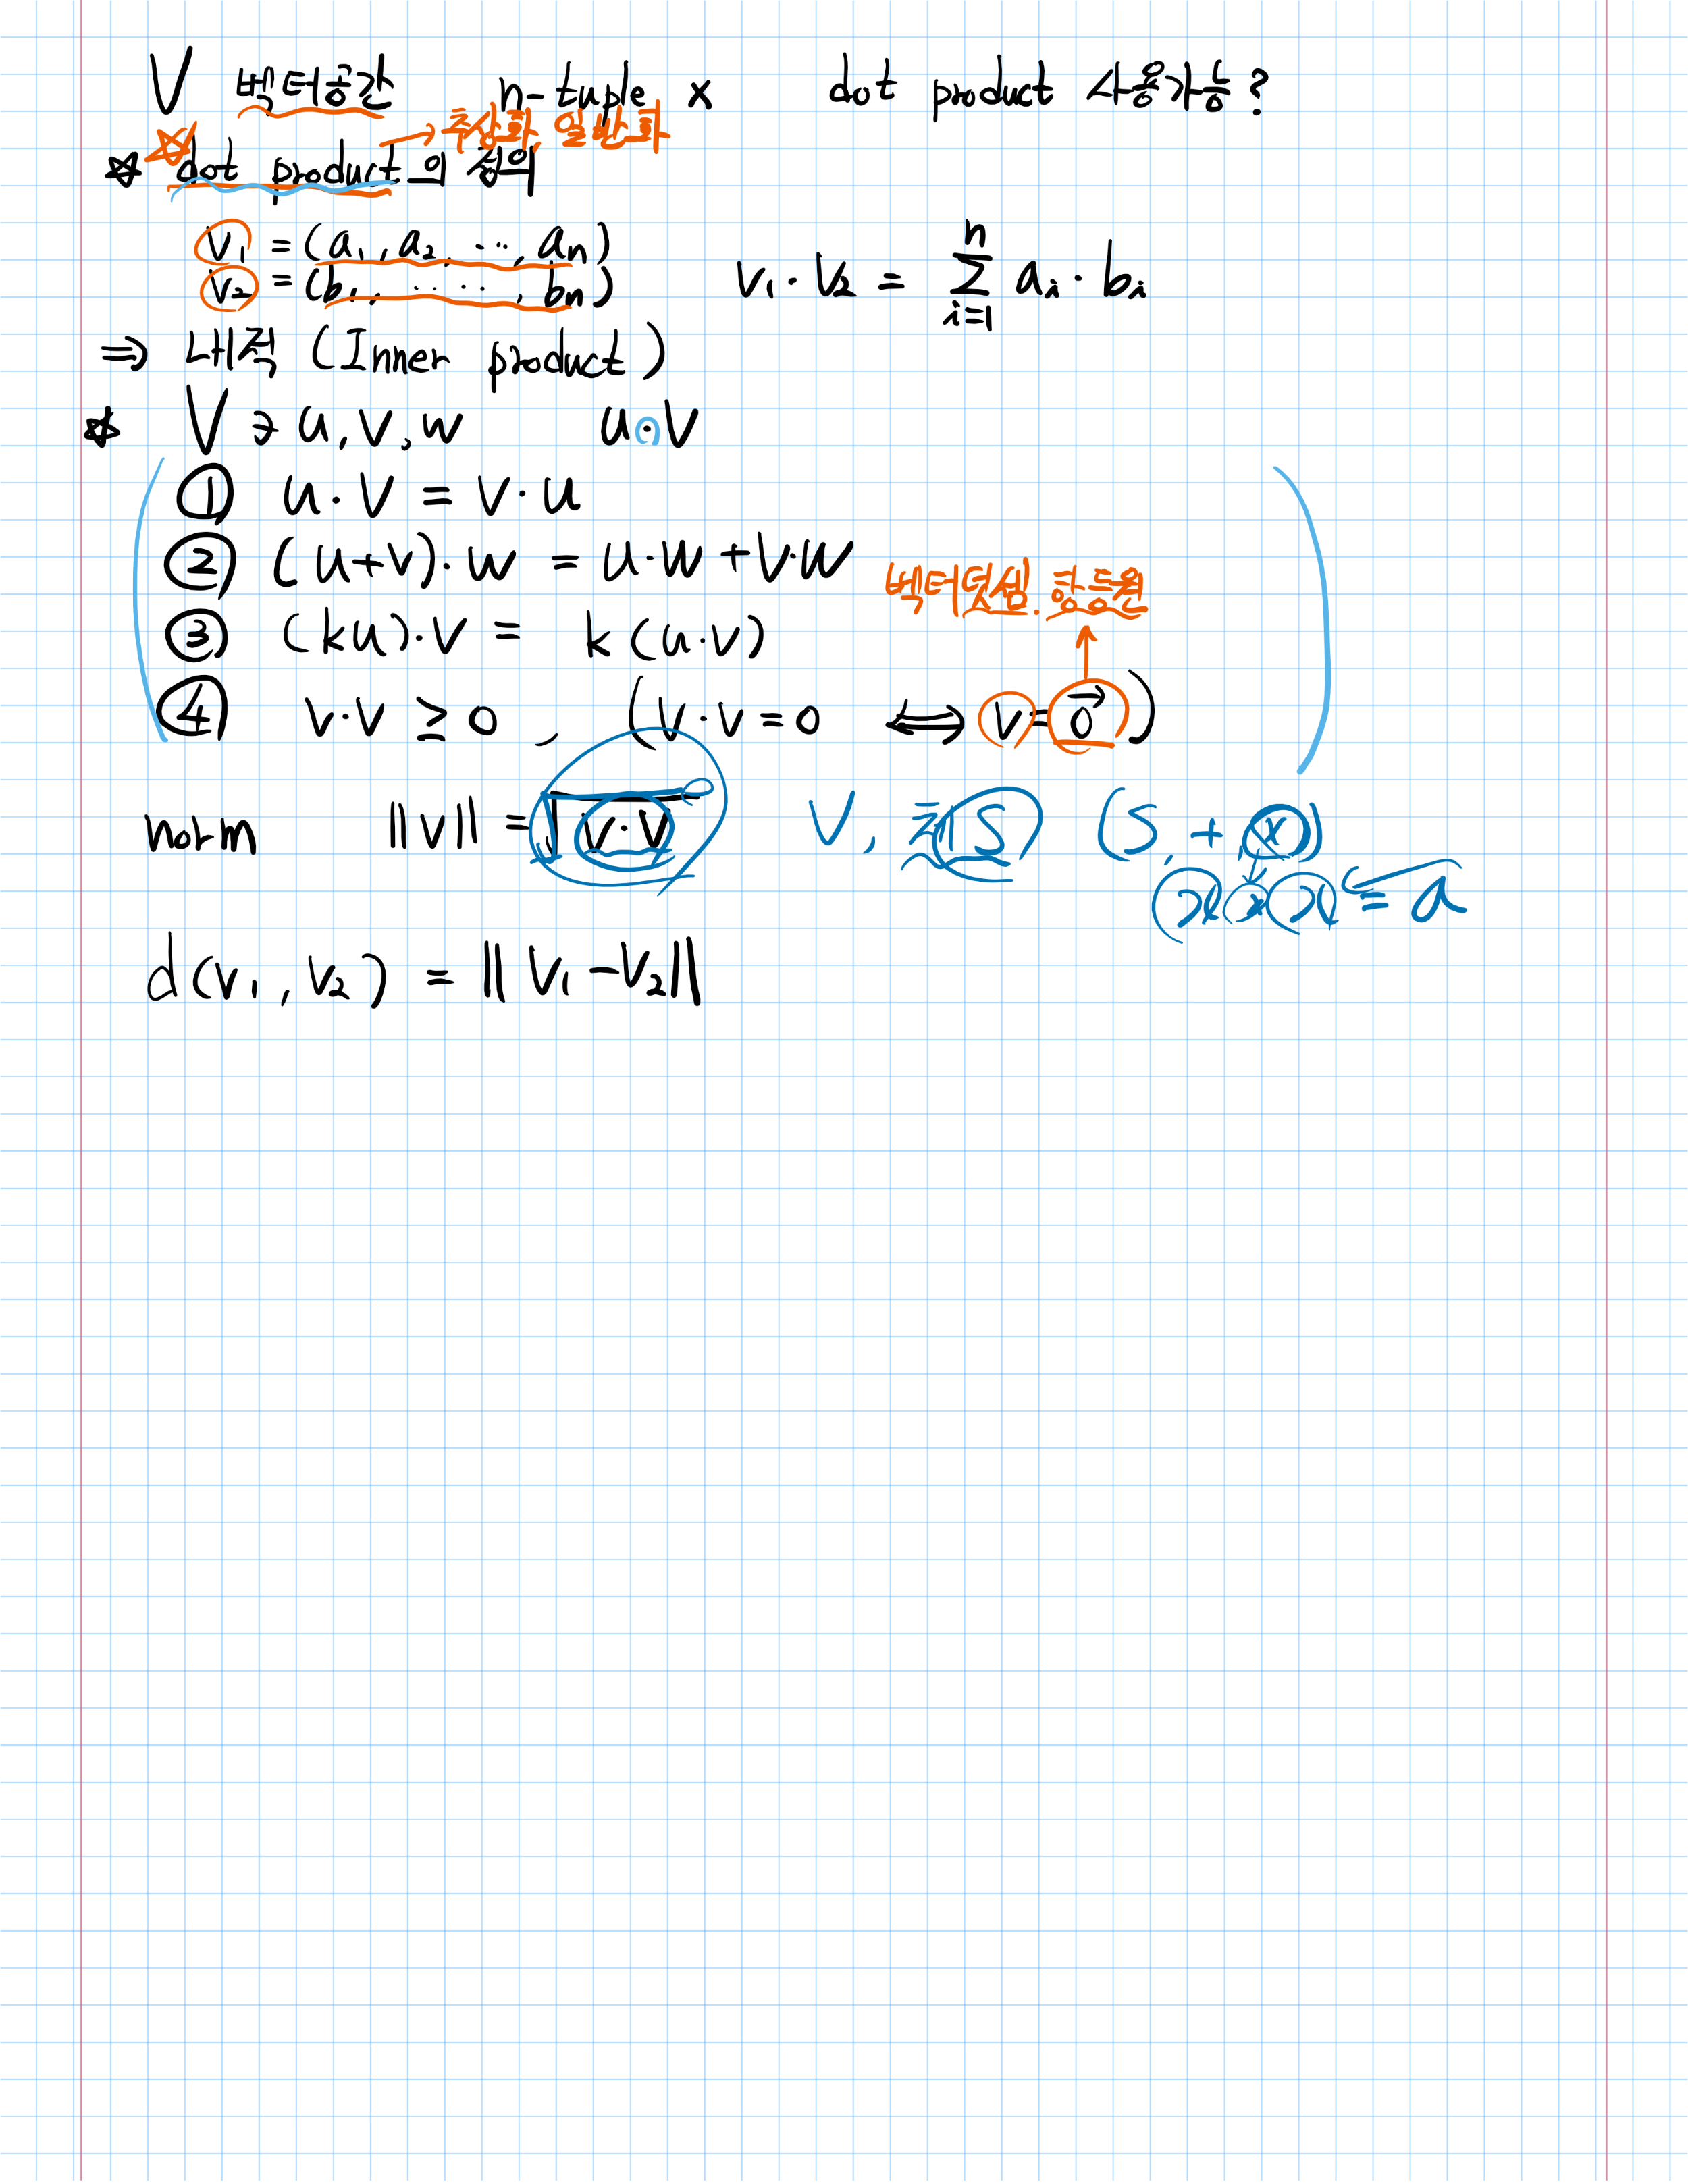 V 벡터공간 n-tuple x dot product 사용가능?
추상화, 일반화
dot product의 정의
v₁ = (a₁, a₂, ..., aₙ)
v₂ = (b₁, ....., bₙ) v₁·v₂ = Σᵢ₌₁ⁿ aᵢ·bᵢ
⇒ 내적 (Inner product)
V ∋ u, v, w u·v
① u·v = v·u
② (u+v)·w = u·w + v·w
벡터덧셈. 항등원
③ (ku)·v = k(u·v)
④ v·v ≥ 0, (v·v = 0 ⟺ v = 0⃗)
norm ‖v‖ = √(v·v) V, 체 S (S, +, ×)
x × x = a
d(v₁, v₂) = ‖v₁ - v₂‖